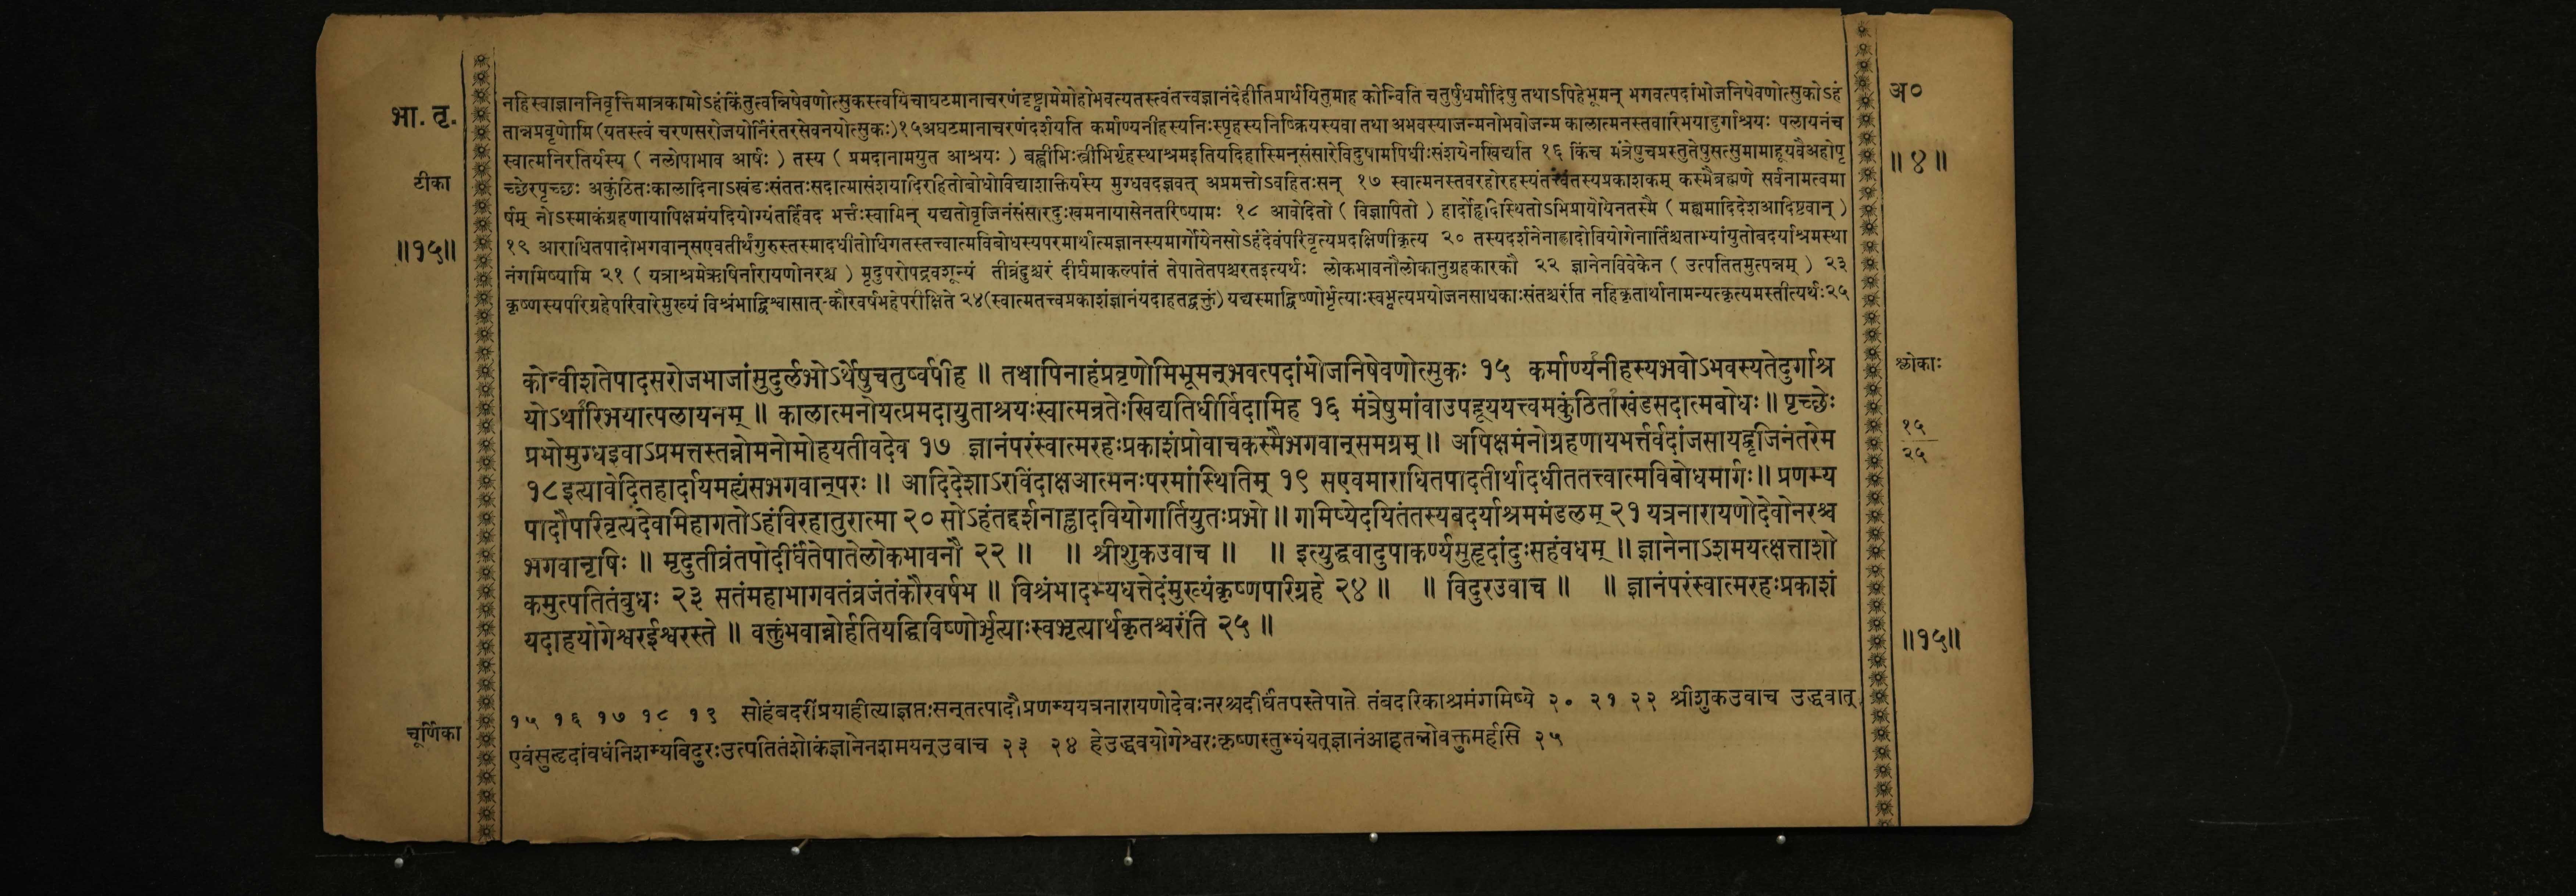 नहिस्वाज्ञाननिवृत्तिमात्रकामोऽहंकिंतुत्वन्निषेवणोत्सुकस्त्वयिचाघटमानाचरणंदृष्ट्वामेमोहोभवत्यतस्त्वंतत्त्वज्ञानंदेहीतिप्रार्थयितुमाह कोन्विति चतुर्षुधर्मादिषु तथाऽपिहेभूमन् भगवत्पदांभोजनिषेवणोत्सुकोऽहं
अ०
भा. तृ.
तान्नप्रवृणोमि (यतस्त्वं चरणसरोजयोर्निरंतरसेवनयोत्सुकः) १५ अघटमानाचरणंदर्शयति कर्माण्यनीहस्यनिःस्पृहस्यनिष्क्रियस्यवा तथा अभवस्याजन्मनोभवोजन्म कालात्मनस्तवारिभयाद्दुर्गाश्रयः पलायनंच
स्वात्मनिरतिर्यस्य ( नलोपाभाव आर्षः ) तस्य ( प्रमदानामयुत आश्रयः ) बह्वीभिःस्त्रीभिर्गृहस्थाश्रमइतियदिहास्मिन्संसारेविदुषामपिधीःसंशयेनखिद्यति १६ किंच मंत्रेषुचप्रस्तुतेषुसत्सुमामाहूयवैअहोपृ
॥ ४ ॥
टीका
च्छेरपृच्छः अकुंठितःकालादिनाऽखंडःसंततःसदात्मासंशयादिरहितोबोधोविद्याशक्तिर्यस्य मुग्धवदज्ञवत् अप्रमत्तोऽवहितःसन् १७ स्वात्मनस्तवरहोरहस्यंतत्त्वंतस्यप्रकाशकम् कस्मैब्रह्मणे सर्वनामत्वमा
र्षम् नोऽस्माकंग्रहणायापिक्षमंयदियोग्यंतर्हिवद भर्त्तःस्वामिन् यद्यतोवृजिनंसंसारदुःखमनायासेनतरिष्यामः १८ आवेदितो ( विज्ञापितो ) हार्दोहृदिस्थितोऽभिप्रायोयेनतस्मै ( मह्यमादिदेशआदिष्टवान् )
॥१५॥
१९ आराधितपादोभगवान्सएवतीर्थंगुरुस्तस्मादधीतोधिगतस्तत्त्वात्मविबोधस्यपरमार्थात्मज्ञानस्यमार्गोयेनसोऽहंदेवंपरिवृत्यप्रदक्षिणीकृत्य २० तस्यदर्शनेनाह्लादोवियोगेनार्तिश्चताभ्यांयुतोबदर्याश्रमस्था
नंगमिष्यामि २१ ( यत्राश्रमेऋषिर्नारायणोनरश्च ) मृदुपरोपद्रवशून्यं तीव्रंदुश्चरं दीर्घमाकल्पांतं तेपातेतपश्चरतइत्यर्थः लोकभावनौलोकानुग्रहकारकौ २२ ज्ञानेनविवेकेन ( उत्पतितमुत्पन्नम् ) २३
कृष्णस्यपरिग्रहेपरिवारेमुख्यं विश्रंभाद्विश्वासात् कौरवर्षभहेपरीक्षिते २४ (स्वात्मतत्त्वप्रकाशंज्ञानंयदाहतद्वक्तुं) यद्यस्माद्विष्णोर्भृत्याःस्वभृत्यप्रयोजनसाधकाःसंतश्चरंति नहिकृतार्थानामन्यत्कृत्यमस्तीत्यर्थः२५
कोन्वीशतेपादसरोजभाजांसुदुर्लभोऽर्थेषुचतुर्ष्वपीह ॥ तथापिनाहंप्रवृणोमिभूमन्भवत्पदांभोजनिषेवणोत्सुकः १५ कर्माण्यनीहस्यभवोऽभवस्यतेदुर्गाश्र
श्लोकाः
योऽथारिभयात्पलायनम् ॥ कालात्मनोयत्प्रमदायुताश्रयःस्वात्मन्रतेःखिद्यतिधीर्विदामिह १६ मंत्रेषुमांवाउपहूययत्त्वमकुंठिताखंडसदात्मबोधः ॥ पृच्छेः
प्रभोमुग्धइवाऽप्रमत्तस्तन्नोमनोमोहयतीवदेव १७ ज्ञानंपरंस्वात्मरहःप्रकाशंप्रोवाचकस्मैभगवान्समग्रम् ॥ अपिक्षमंनोग्रहणायभर्त्तर्वदांजसायद्वृजिनंतरेम
१५
२५
१८ इत्यावेदितहार्दायमह्यंसभगवान्परः ॥ आदिदेशाऽरविंदाक्षआत्मनःपरमांस्थितिम् १९ सएवमाराधितपादतीर्थादधीततत्त्वात्मविबोधमार्गः ॥ प्रणम्य
पादौपरिवृत्यदेवमिहागतोऽहंविरहातुरात्मा २० सोऽहंतद्दर्शनाह्लादवियोगार्तियुतःप्रभो ॥ गमिष्येदयितंतस्यबदर्याश्रममंडलम् २१ यत्रनारायणोदेवोनरश्च
भगवानृषिः ॥ मृदुतीव्रंतपोदीर्घंतेपातेलोकभावनौ २२ ॥ ॥ श्रीशुकउवाच ॥ ॥ इत्युद्धवादुपाकर्ण्यसुहृदांदुःसहंवधम् ॥ ज्ञानेनाऽशमयत्क्षत्ताशो
कमुत्पतितंबुधः २३ सतंमहाभागवतंव्रजंतंकौरवर्षभ ॥ विश्रंभादभ्यधत्तेदंमुख्यंकृष्णपरिग्रहे २४ ॥ ॥ विदुरउवाच ॥ ॥ ज्ञानंपरंस्वात्मरहःप्रकाशं
यदाहयोगेश्वरईश्वरस्ते ॥ वक्तुंभवान्नोर्हतियद्धिविष्णोर्भृत्याःस्वभृत्यार्थकृतश्चरंति २५ ॥
॥१५॥
चूर्णिका
१५ १६ १७ १८ १९ सोहंबदरींप्रयाहीत्याज्ञप्तःसन्तत्पादौप्रणम्ययत्रनारायणोदेवःनरश्चदीर्घंतपस्तेपाते तंबदरिकाश्रमंगमिष्ये २० २१ २२ श्रीशुकउवाच उद्धवात्
एवंसुहृदांवधंनिशम्यविदुरःउत्पतितंशोकंज्ञानेनशमयन्उवाच २३ २४ हेउद्धवयोगेश्वरःकृष्णस्तुभ्यंयत्ज्ञानंआहतन्नोवक्तुमर्हसि २५